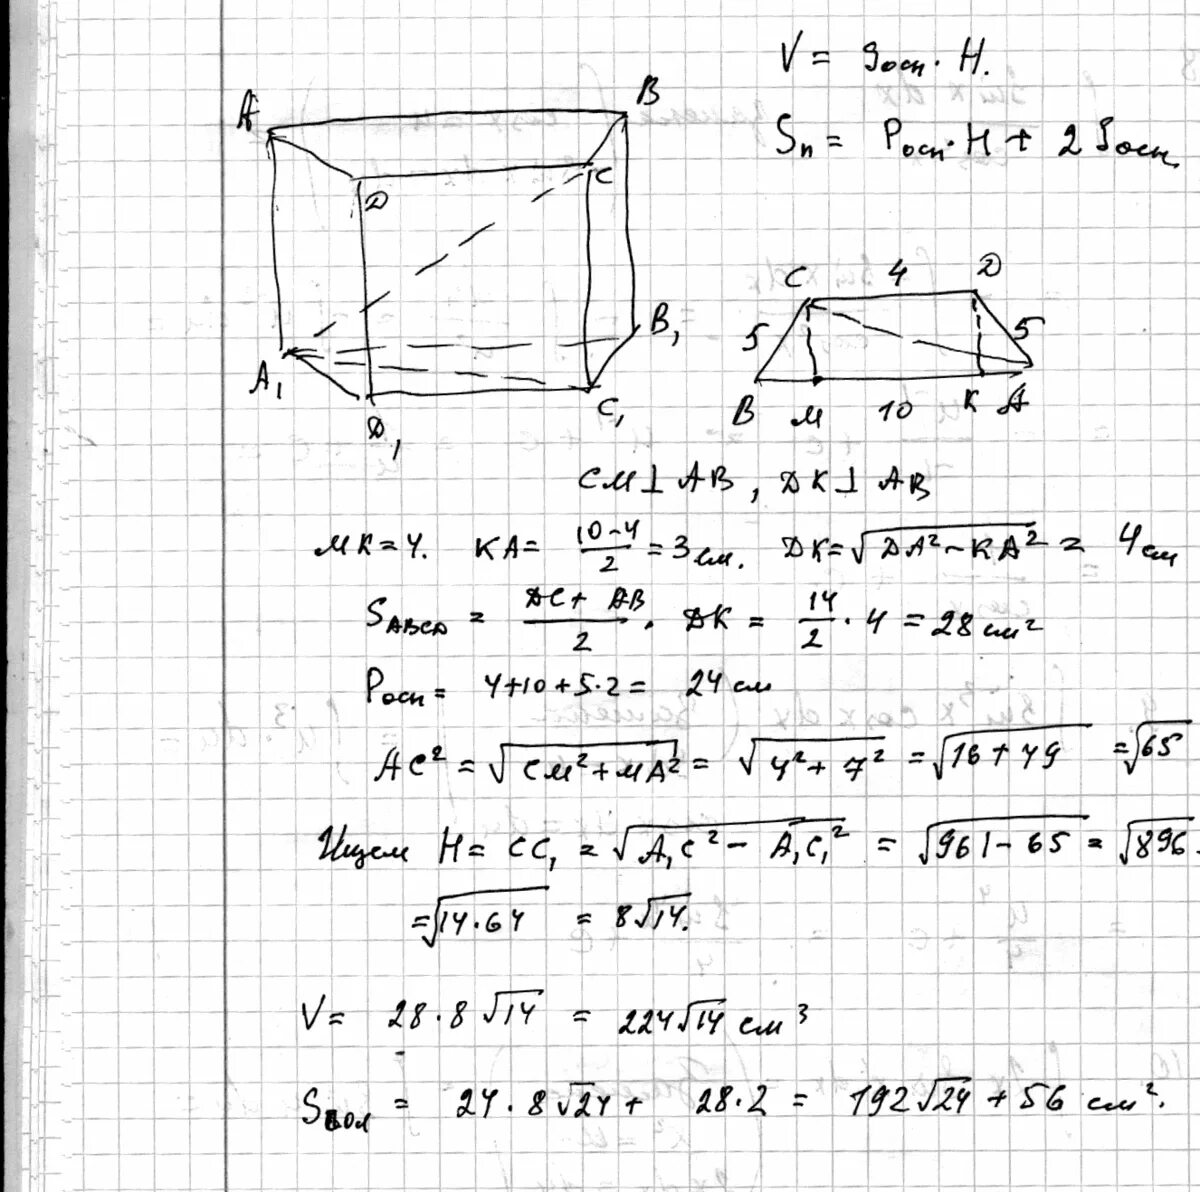 V = Sосн · H.
Sп = Pосн · H + 2 Sосн.
A B
D C
A₁ B₁
D₁ C₁
C 4 D
5 5
B M 10 K A
CM ⊥ AB, DK ⊥ AB
MK = 4. KA = (10-4)/2 = 3 см. DK = √(DA² - KA²) = 4 см
S_ABCD = (DC + AB)/2 · DK = 14/2 · 4 = 28 см²
Pосн = 4+10+5·2 = 24 см
AC² = √(CM² + MA²) = √(4² + 7²) = √(16 + 49) = √65
Ищем H = CC₁ = √(A₁C² - A₁C₁²) = √(961 - 65) = √896.
= √(14·64) = 8√14.
V = 28·8√14 = 224√14 см³
Sпол = 24·8√24 + 28·2 = 192√24 + 56 см².